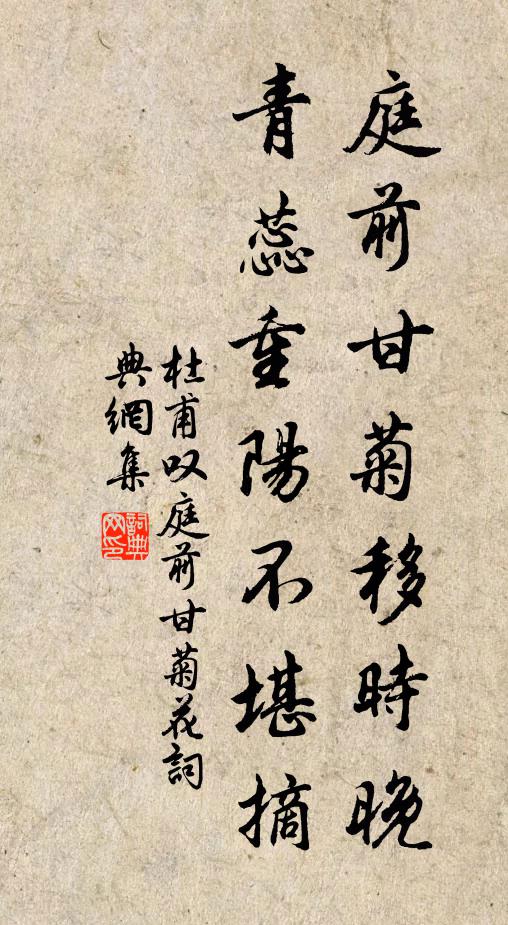 庭前甘菊移時晚
青蕊重陽不堪摘
杜甫叹庭前甘菊花詞
典網集
詞典网印